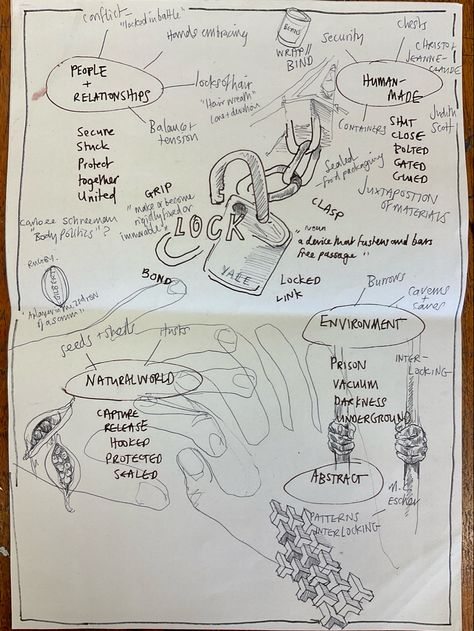 conflict -
"locked in battle"
Hands embracing
PEOPLE
+
RELATIONSHIPS
locks of hair
"Hair wreath"
Love + devotion
Balance +
tension
Secure
Stuck
Protect
together
United
BEANS
WRAP //
BIND
security
chests
CHRISTO +
JEANNE-
CLAUDE
HUMAN-
MADE
Judith
Scott
CONTAINERS
SHUT
CLOSE
BOLTED
GATED
GLUED
JUXTAPOSITION
OF MATERIALS
Sealed
- food packaging
CLASP
GRIP
"make or become
rigidly fixed or
immovable"
LOCK
"noun
a device that fastens and bars
free passage"
YALE
LOCKED
LINK
BOND
Carolee Schneeman
"Body politics"?
RUGBY.
of a scrum"
seeds + sheds
Husks
NATURAL WORLD
CAPTURE
RELEASE
HOOKED
PROTECTED
SEALED
Burrows
caverns +
caves
ENVIRONMENT
INTER-
LOCKING
PRISON
VACUUM
DARKNESS
UNDERGROUND
ABSTRACT
M.C.
Escher
PATTERNS
INTERLOCKING